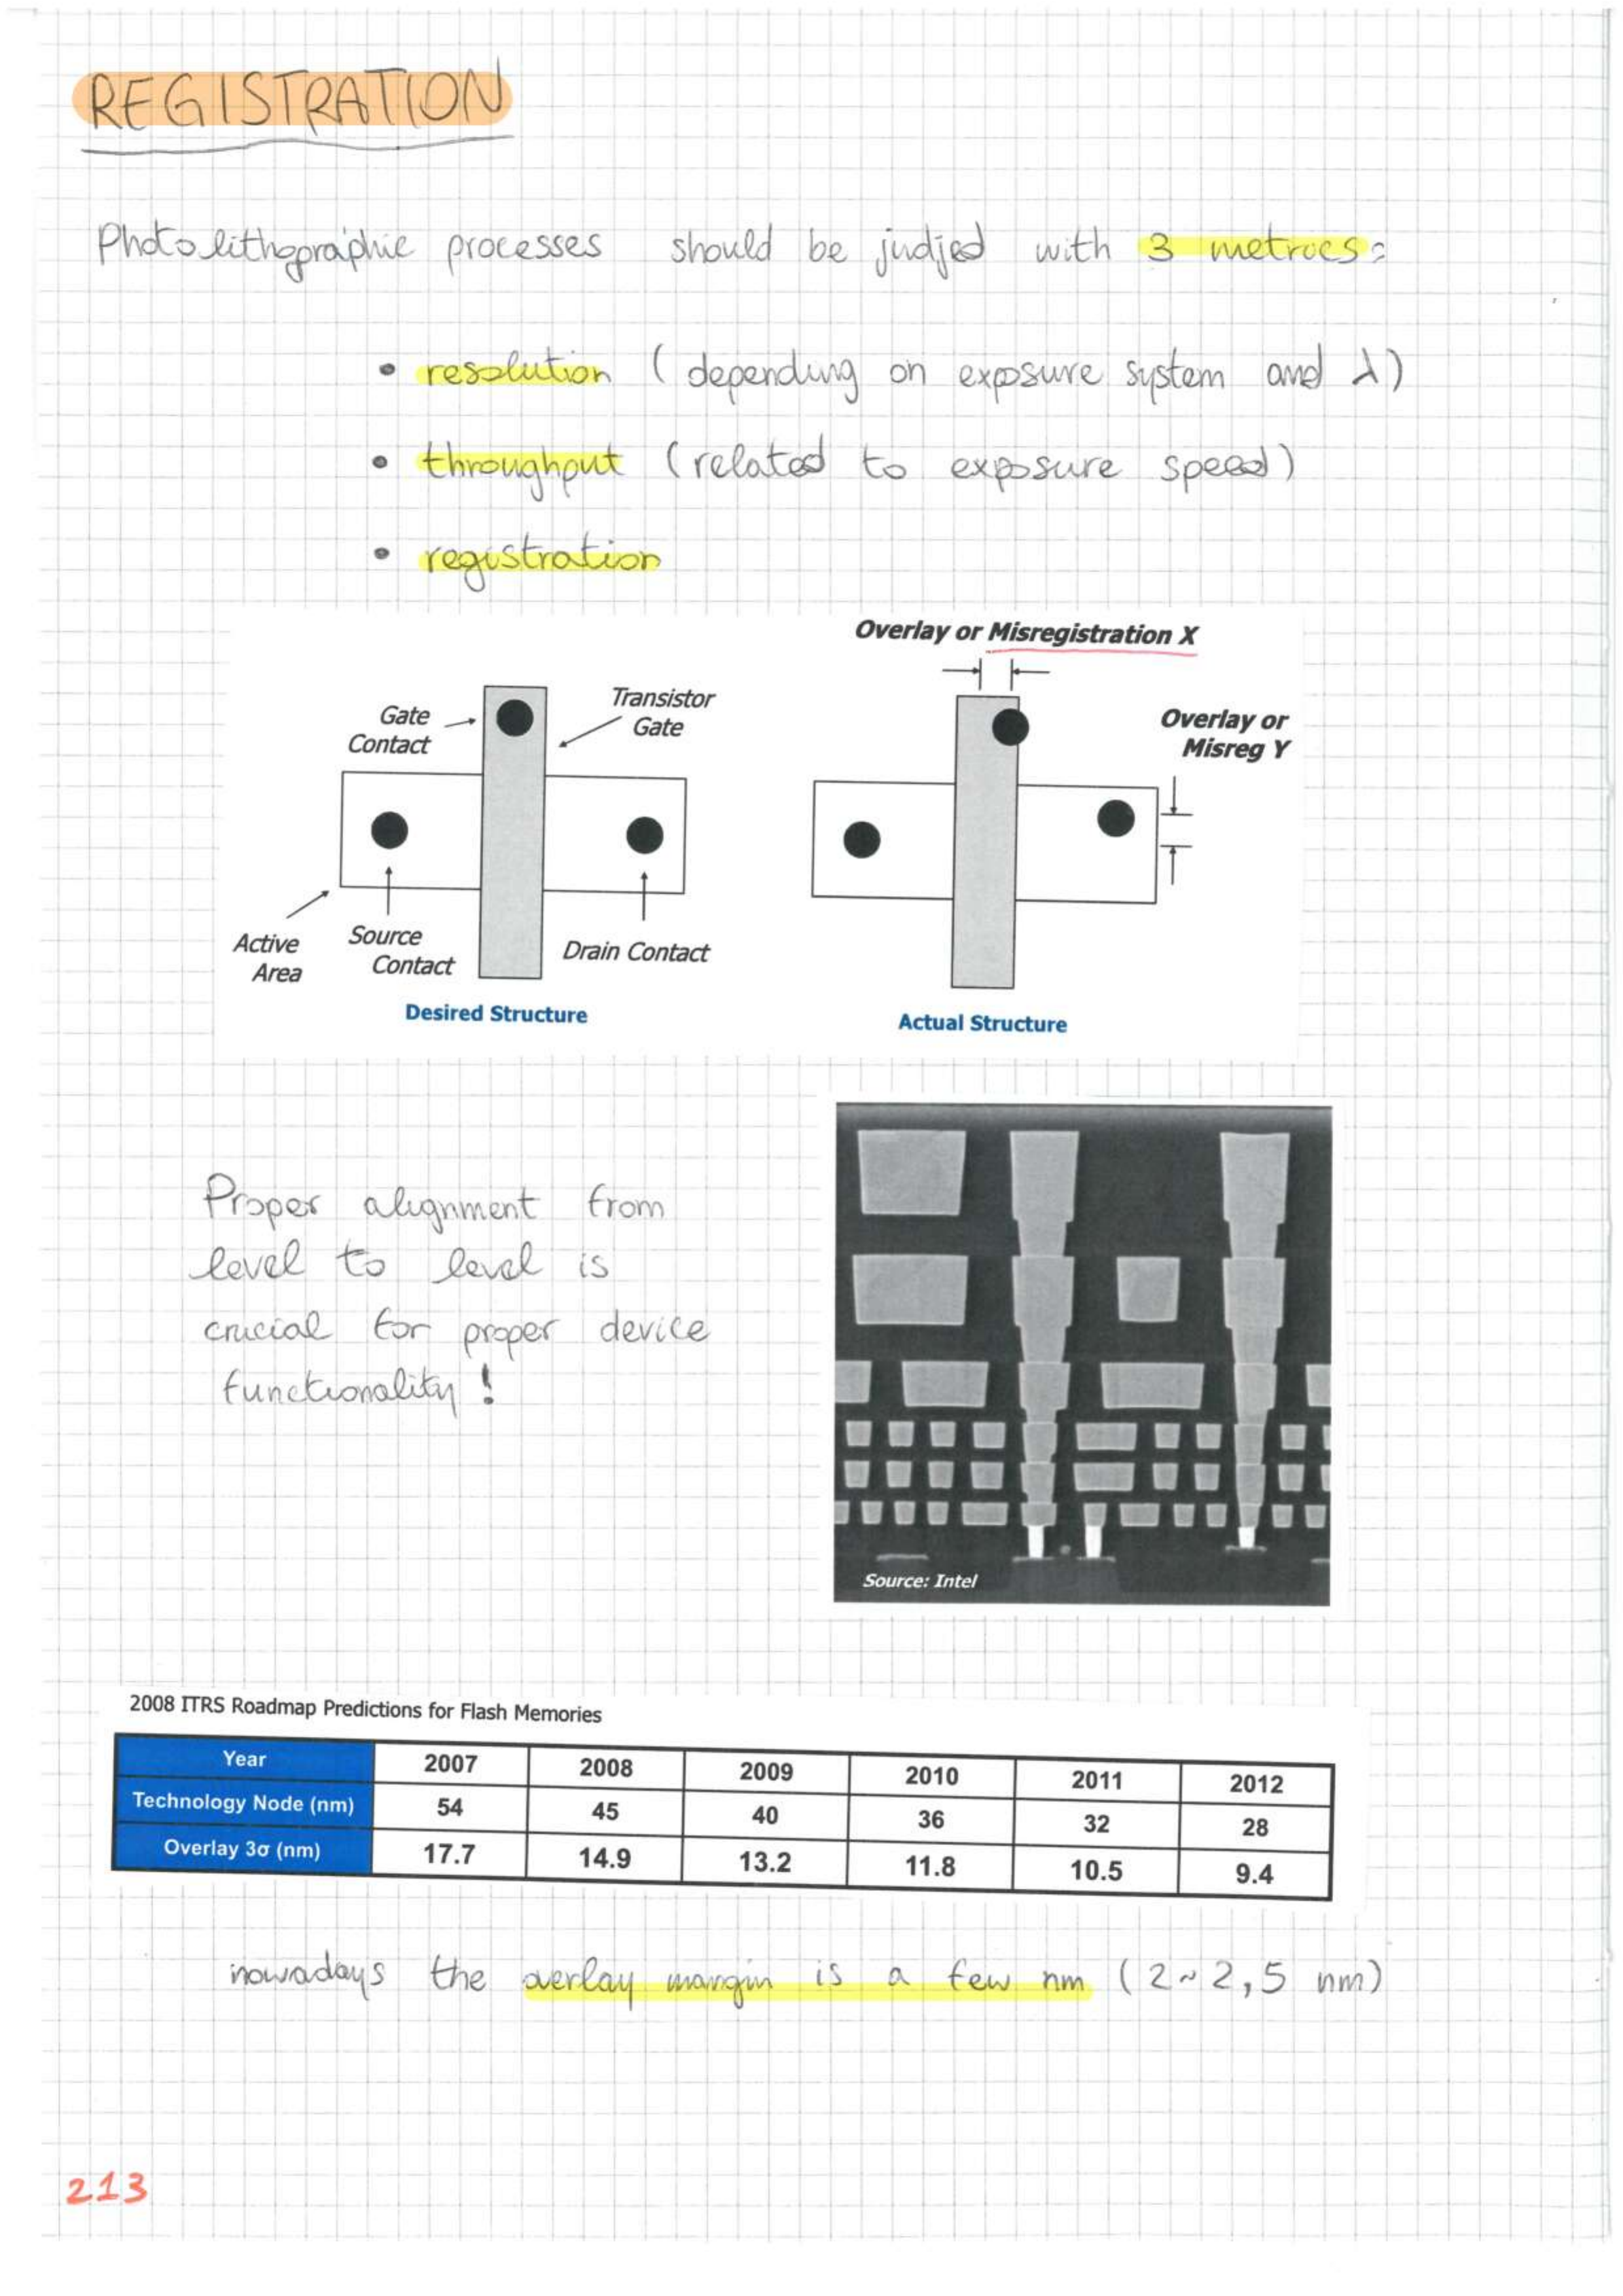 REGISTRATION
Photolithographic processes should be judjed with 3 metrics:
• resolution (depending on exposure system and λ)
• throughput (related to exposure speed)
• registration
Overlay or Misregistration X
Gate
Contact
Transistor
Gate
Overlay or
Misreg Y
Active
Area
Source
Contact
Drain Contact
Desired Structure
Actual Structure
Proper alignment from
level to level is
crucial for proper device
functionality!
Source: Intel
2008 ITRS Roadmap Predictions for Flash Memories
Year 2007 2008 2009 2010 2011 2012
Technology Node (nm) 54 45 40 36 32 28
Overlay 3σ (nm) 17.7 14.9 13.2 11.8 10.5 9.4
nowadays the overlay margin is a few nm (2~2,5 nm)
213